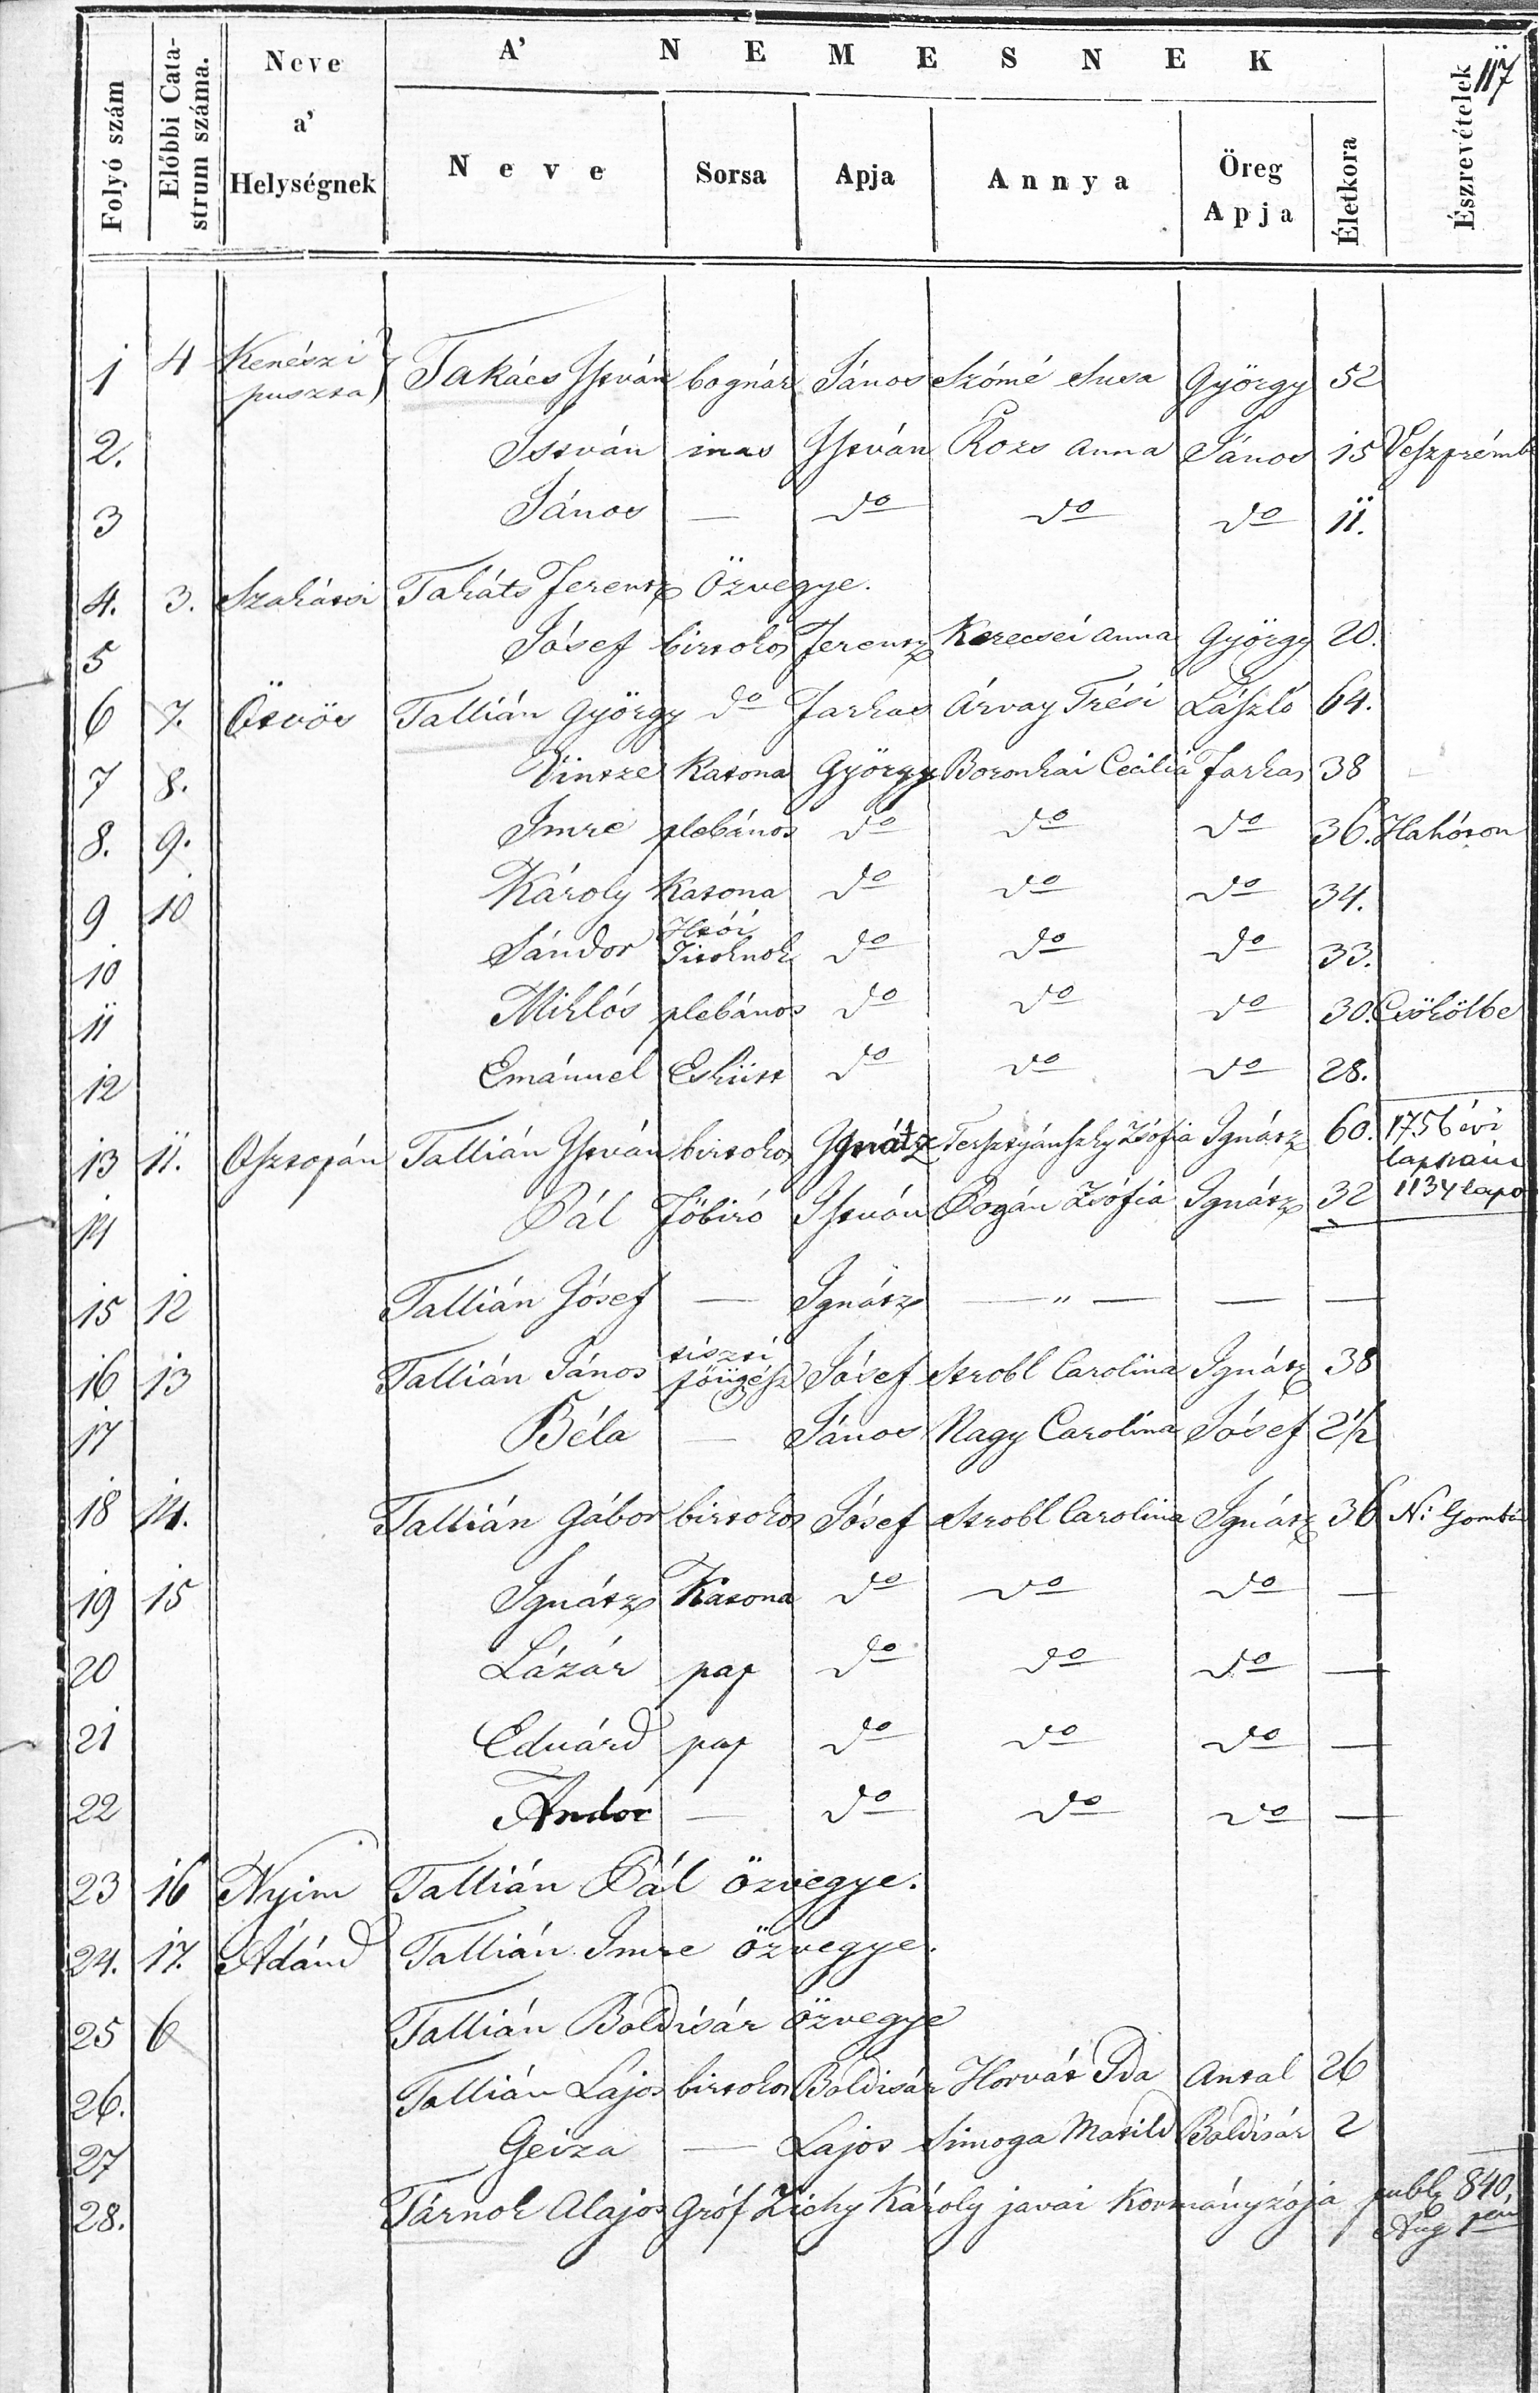 117
A' NEMESNEK
Folyó szám | Előbbi Catastrum száma. | Neve a' Helységnek | Neve | Sorsa | Apja | Annya | Öreg Apja | Életkora | Észrevételek
1 | 4 | Kenészi puszta | Takács István | bognár | János | Szómé Susa | György | 52
2. | István | inas | István | Rozs Anna | János | 15 | Veszprémb
3 | János | — | do | do | do | 11.
4. | 3. | Szakátsi | Takáts Ferentz Özvegye.
5 | Jósef | birtokos | Ferentz | Kerecsei Anna | György | 20.
6 | 7. | Ötvös | Tallián György | do | Farkas | Árvay Trési | László | 64.
7 | 8. | Vintze | Katona | György | Boronkai Cecilia | Farkas | 38
8. | 9. | Imre | plebános | do | do | do | 36. | Hahóton
9 | 10 | Károly | Katona | do | do | do | 34.
10 | Sándor | Titoknok | do | do | do | 33.
11 | Miklós | plebános | do | do | do | 30. | Csökölbe
12 | Emánuel | Eskütt | do | do | do | 28.
13 | 11. | Osztopán | Tallián István | birtokos | Ignátz | Tersztyánszky Zsófia | Ignátz | 60. | 1756 évi
14 | Pál | Főbiró | István | Bogán Zsófia | Ignátz | 32 | 1134 lapo
15 | 12 | Tallián Jósef | — | Ignátz | — " — | — | —
16 | 13 | Tallián János | tiszti főügész | Jósef | Strobl Carolina | Ignátz | 38
17 | Béla | — | János | Nagy Carolina | Jósef | 2 1/2
18 | 14. | Tallián Gábor | birtokos | Jósef | Strobl Carolina | Ignátz | 36 | N: Gomba
19 | 15 | Ignátz | Katona | do | do | do | —
20 | Lázár | pap | do | do | do | —
21 | Eduárd | pap | do | do | do | —
22 | Andor | — | do | do | do | —
23 | 16 | Nyim | Tallián Pál özvegye.
24. | 17. | Ádánd | Tallián Imre özvegye.
25 | 6 | Tallián Boldisár özvegye
26. | Tallián Lajos | birtokos | Boldisár | Horvát Ida | Antal | 26
27 | Geiza | — | Lajos | Simoga Matild | Boldisár | 2
28. | Tárnok Alajos Gróf Zichy Károly javai Kormányzója | publ 840. Aug